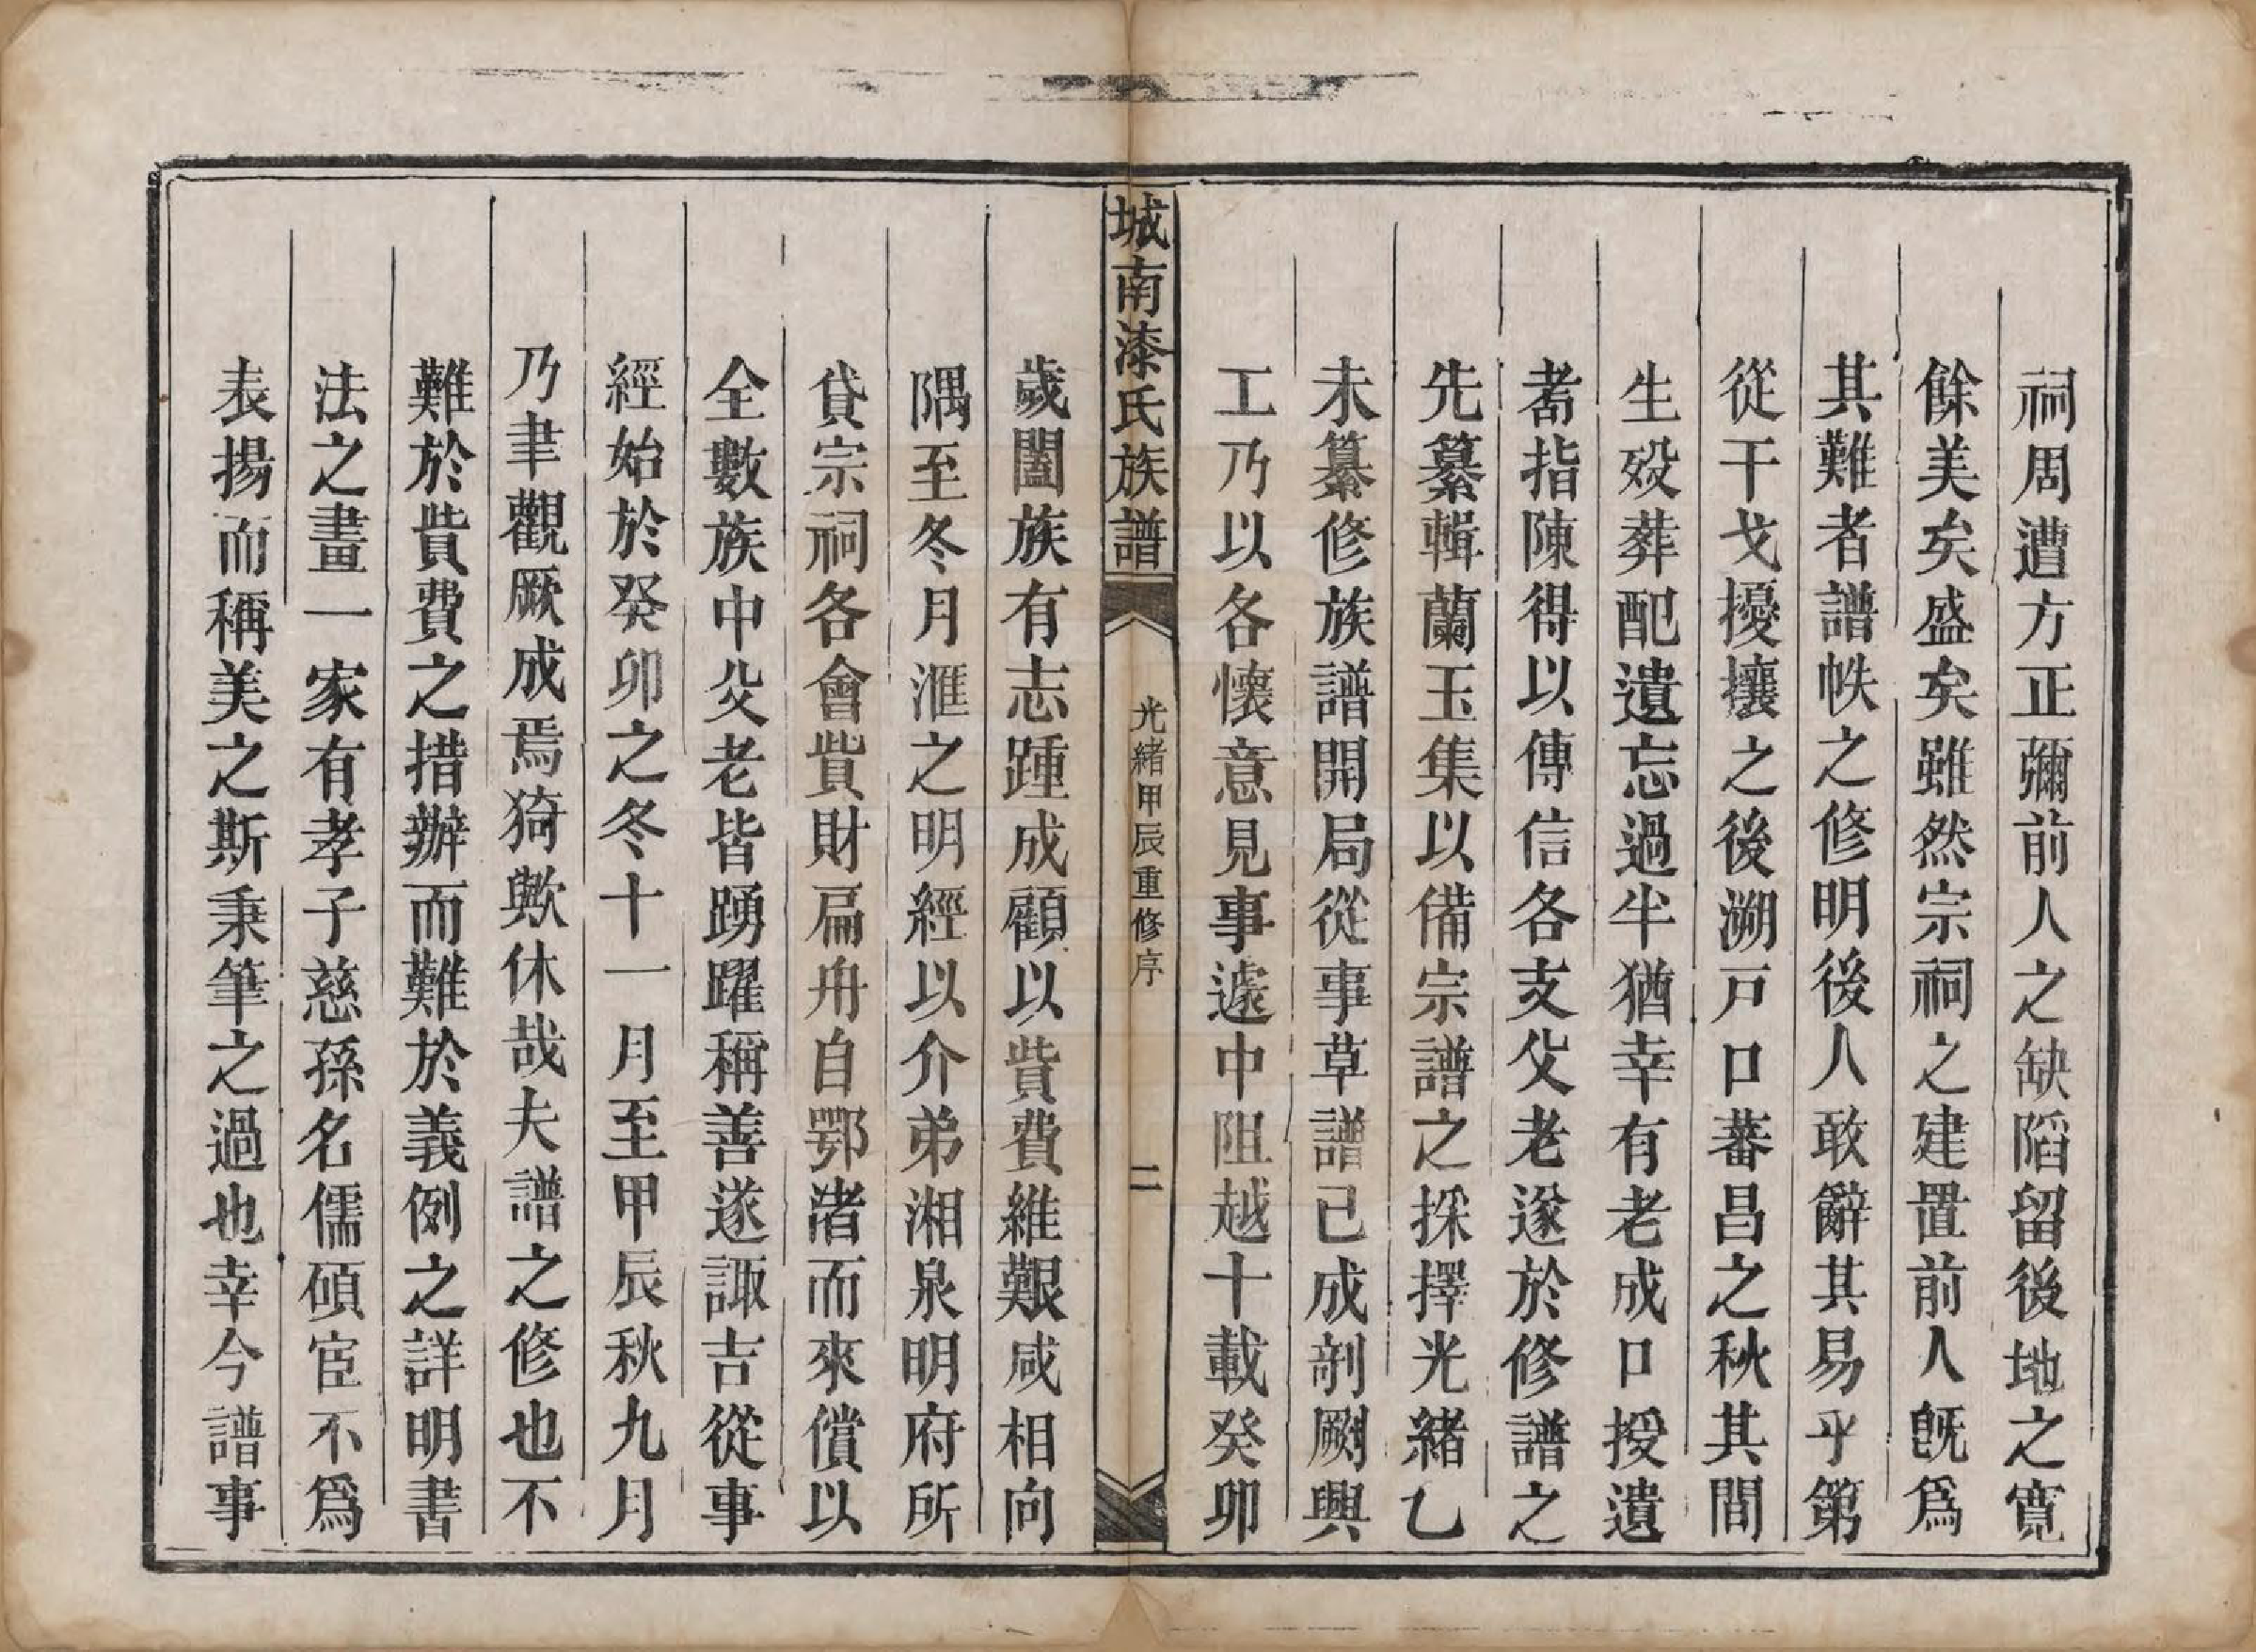 祠周遭方正彌前人之缺陷留後地之寬
餘美矣盛矣雖然宗祠之建置前人旣爲
其難者譜帙之修明後人敢辭其易乎第
從干戈擾攘之後溯戸口蕃昌之秋其間
生殁葬配遺忘過半猶幸有老成口授遺
耆指陳得以傳信各支父老遂於修譜之
先纂輯蘭玉集以備宗譜之採擇光緒乙
未纂修族譜開局從事草譜已成剞劂興
工乃以各懷意見事遽中阻越十載癸卯
城南漆氏族譜
光緒甲辰重修序
二
歲闔族有志踵成顧以貲費維艱咸相向
隅至冬月滙之明經以介弟湘泉明府所
貸宗祠各會貲財扁舟自鄂渚而來償以
全數族中父老皆踴躍稱善遂諏吉從事
經始於癸卯之冬十一月至甲辰秋九月
乃聿觀厥成焉猗歟休哉夫譜之修也不
難於貲費之措辦而難於義例之詳明書
法之畫一家有孝子慈孫名儒碩宦不爲
表揚而稱美之斯秉筆之過也幸今譜事